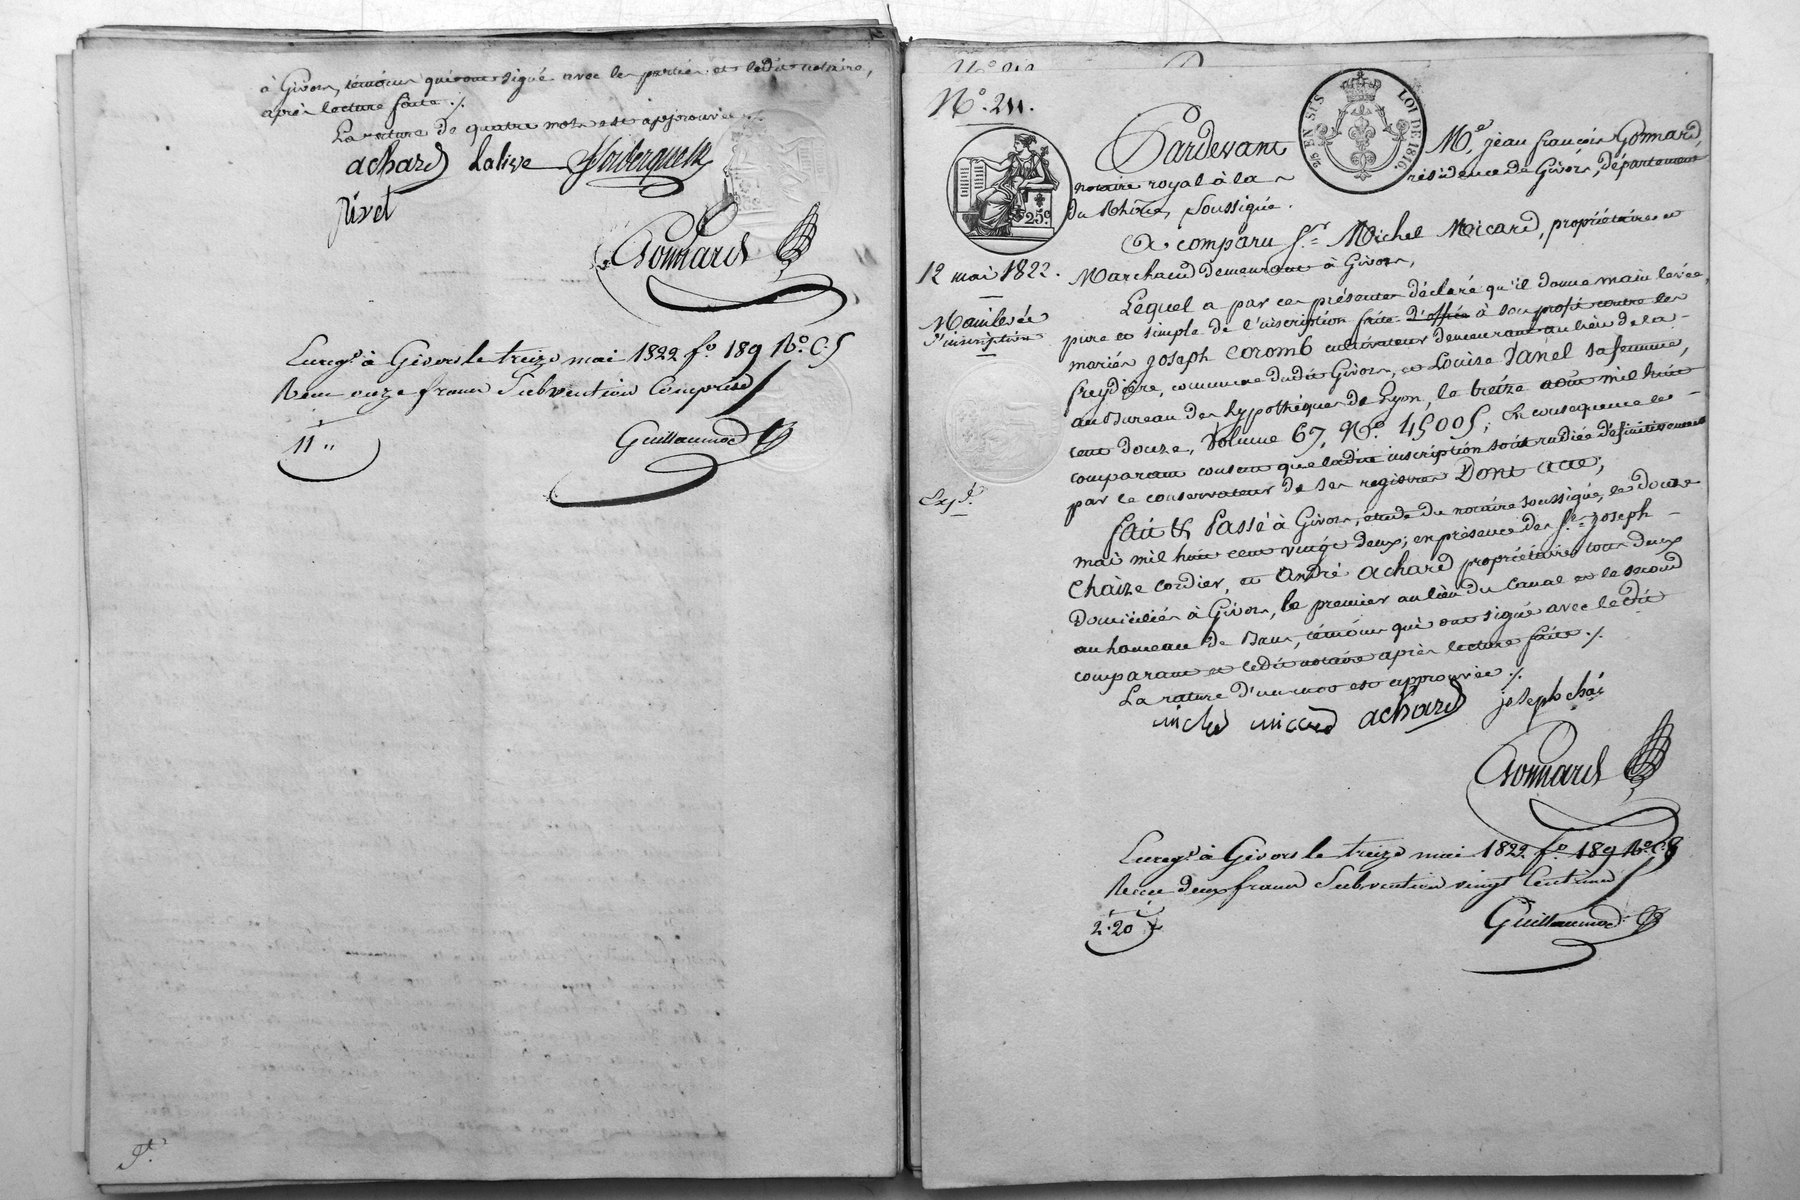 à Givors, témoins qui ont signé avec les parties et ledit notaire,
après lecture faite ./.
La rature de quatre mots est approuvée ./.
achard Lalive
Rivet
Gonnard
Enregé à Givors le treize mai 1822 fo 189 Ro C. 5
Reçu onze francs Subvention Comprise
11 "
Guillaumod
No. 211.
25 EN SUS LOI DE 1816
25c
12 mai 1822.
Mainlevée
d'inscription
Expé.
Pardevant Me. jean françois Gonnard,
notaire royal à la résidence de Givors, département
du Rhône, Soussigné.
A comparu Sr. Michel Micard, propriétaire et
Marchand demeurant à Givors,
Lequel a par ces présentes déclaré qu'il donne main levée
pure et simple de l'inscription faite d'office à son profit contre les
mariés joseph Coromb cultivateur demeurant au lieu de la
freydière, commune dudit Givors, et Louise Danel sa femme,
au Bureau des hypothèques de Lyon, le treize août mil huit
cent douze, Volume 67, No. 45005; En conséquence le
comparant consent que ladite inscription soit radiée définitivement
par le conservateur de ses registres Dont acte;
Fait & Passé à Givors, étude du notaire soussigné, le douze
mai mil huit cent vingt deux; en présence des Srs. joseph
Chaize cordier, et André Achard propriétaire, tous deux
domiciliés à Givors, le premier au lieu du Canal et le second
au hameau de Bans, témoins qui ont signé avec ledit
comparant et ledit notaire après lecture faite ./.
La rature d'un mot est approuvée ./.
michel miccard achard joseph chaiz
Gonnard
Enregé à Givors le treize mai 1822 fo 189 Ro C. 8
Reçu deux francs Subvention vingt Centimes
2.20
Guillaumod